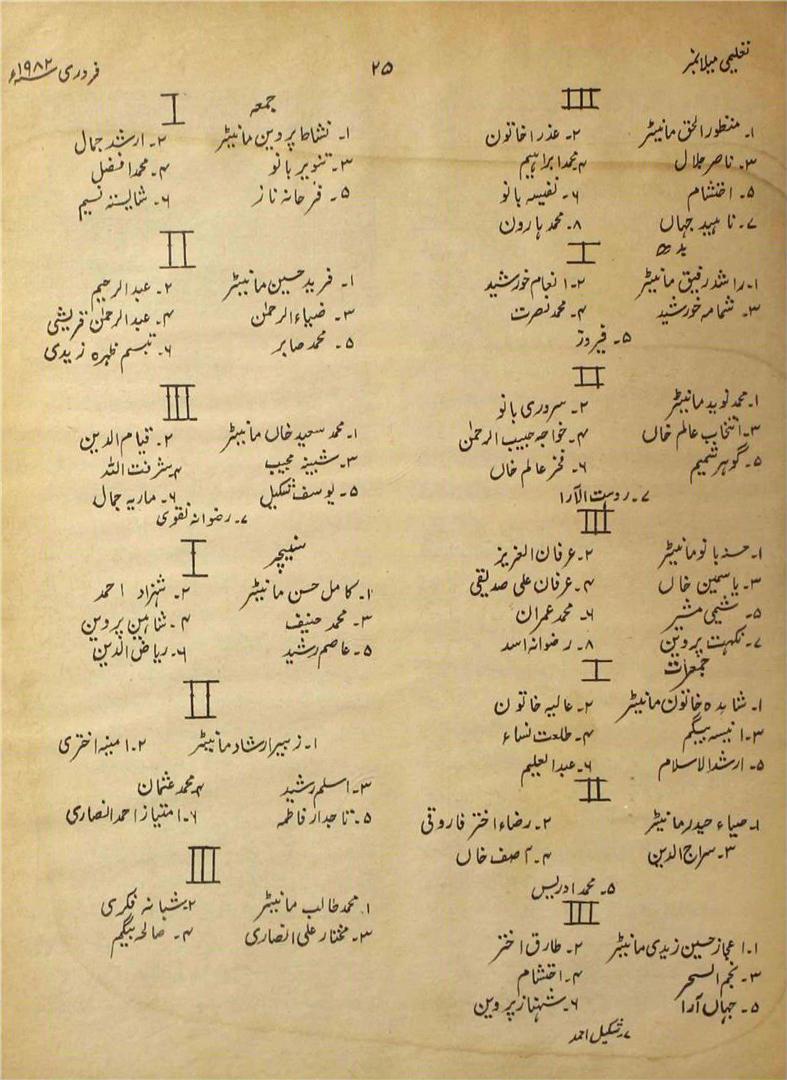 تعلیمی میلا نمبر ۲۵ فروری ۱۹۸۲ء
III
۱۔ منظور الحق مانیٹر ۲۔ عذرا خاتون
۳۔ ناصر جلال ۴۔ محمد ابراہیم
۵۔ احتشام ۶۔ نفیسہ بانو
۷۔ ناہید جہاں ۸۔ محمد ہارون
بدھ
I
۱۔ راشد رفیق مانیٹر ۲۔ انعام خورشید
۳۔ شمامہ خورشید ۴۔ محمد نصرت
۵۔ فیروز
II
۱۔ محمد نوید مانیٹر ۲۔ سروری بانو
۳۔ انتخاب عالم خاں ۴۔ خواجہ حبیب الرحمٰن
۵۔ گوہر شمیم ۶۔ فخر عالم خاں
۷۔ روست الآرا
III
۱۔ حسنہ بانو مانیٹر ۲۔ عرفان العزیز
۳۔ یاسمین خاں ۴۔ عرفان علی صدیقی
۵۔ شیمی مشیر ۶۔ محمد عمران
۷۔ نکہت پروین ۸۔ رضوانہ اسد
جمعرات
I
۱۔ شاہدہ خاتون مانیٹر ۲۔ عالیہ خاتون
۳۔ انیسہ بیگم ۴۔ طلعت نساء
۵۔ ارشد الاسلام ۶۔ عبد العلیم
II
۱۔ ضیاء حیدر مانیٹر ۲۔ رضاء اختر فاروقی
۳۔ سراج الدین ۴۔ آصف خاں
۵۔ محمد ادریس
III
۱۔ اعجاز حسین زیدی مانیٹر ۲۔ طارق اختر
۳۔ نجم السحر ۴۔ احتشام
۵۔ جہاں آرا ۶۔ شہناز پروین
۷۔ شکیل احمد
جمعہ
I
۱۔ نشاط پروین مانیٹر ۲۔ ارشد جمال
۳۔ تنویر بانو ۴۔ محمد افضل
۵۔ فرحانہ ناز ۶۔ شایستہ نسیم
II
۱۔ فرید حسین مانیٹر ۲۔ عبد الرحیم
۳۔ ضیاء الرحمٰن ۴۔ عبد الرحمٰن قریشی
۵۔ محمد صابر ۶۔ تبسم ظہرہ زیدی
III
۱۔ محمد سعید خاں مانیٹر ۲۔ قیام الدین
۳۔ شبینہ مجیب ۴۔ شرفت اللہ
۵۔ یوسف شکیل ۶۔ ماریہ جمال
۷۔ رضوانہ نقوی
سنیچر
I
۱۔ کامل حسن مانیٹر ۲۔ شہزاد احمد
۳۔ محمد حنیف ۴۔ شاہین پروین
۵۔ عاصم رشید ۶۔ ریاض الدین
II
۱۔ زبیر ارشاد مانیٹر ۲۔ امینہ اختری
۳۔ اسلم رشید ۴۔ محمد عثمان
۵۔ تاجدار فاطمہ ۶۔ امتیاز احمد انصاری
III
۱۔ محمد طالب مانیٹر ۲۔ شبانہ فکری
۳۔ مختار علی انصاری ۴۔ صالحہ بیگم